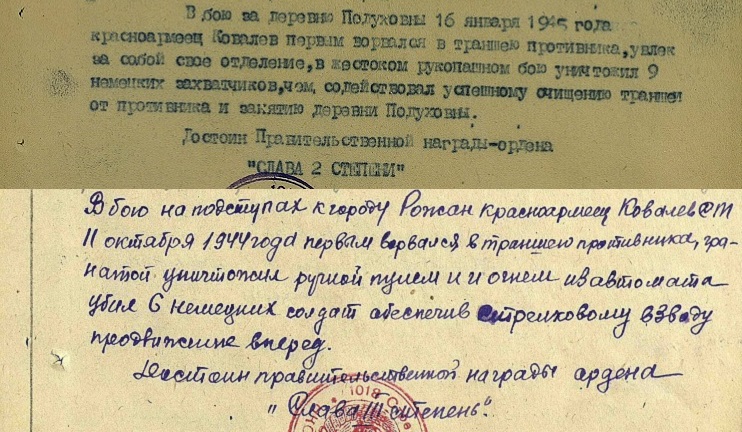 В бою за деревню Подуховны 16 января 1945 года
красноармеец Ковалев первым ворвался в траншею противника, увлек
за собой свое отделение, в жестоком рукопашном бою уничтожил 9
немецких захватчиков, чем содействовал успешному очищению траншеи
от противника и занятию деревни Подуховны.
Достоин Правительственной награды-ордена
"СЛАВА 2 СТЕПЕНИ"
В бою на подступах к городу Рожан красноармеец Ковалев
11 октября 1944 года первым ворвался в траншею противника, гра-
натой уничтожил ручной и огнем из автомата
убил 6 немецких солдат обеспечив стрелковому взводу
продвижение вперед.
Достоин правительственной награды ордена
"Слава III степень".
1018